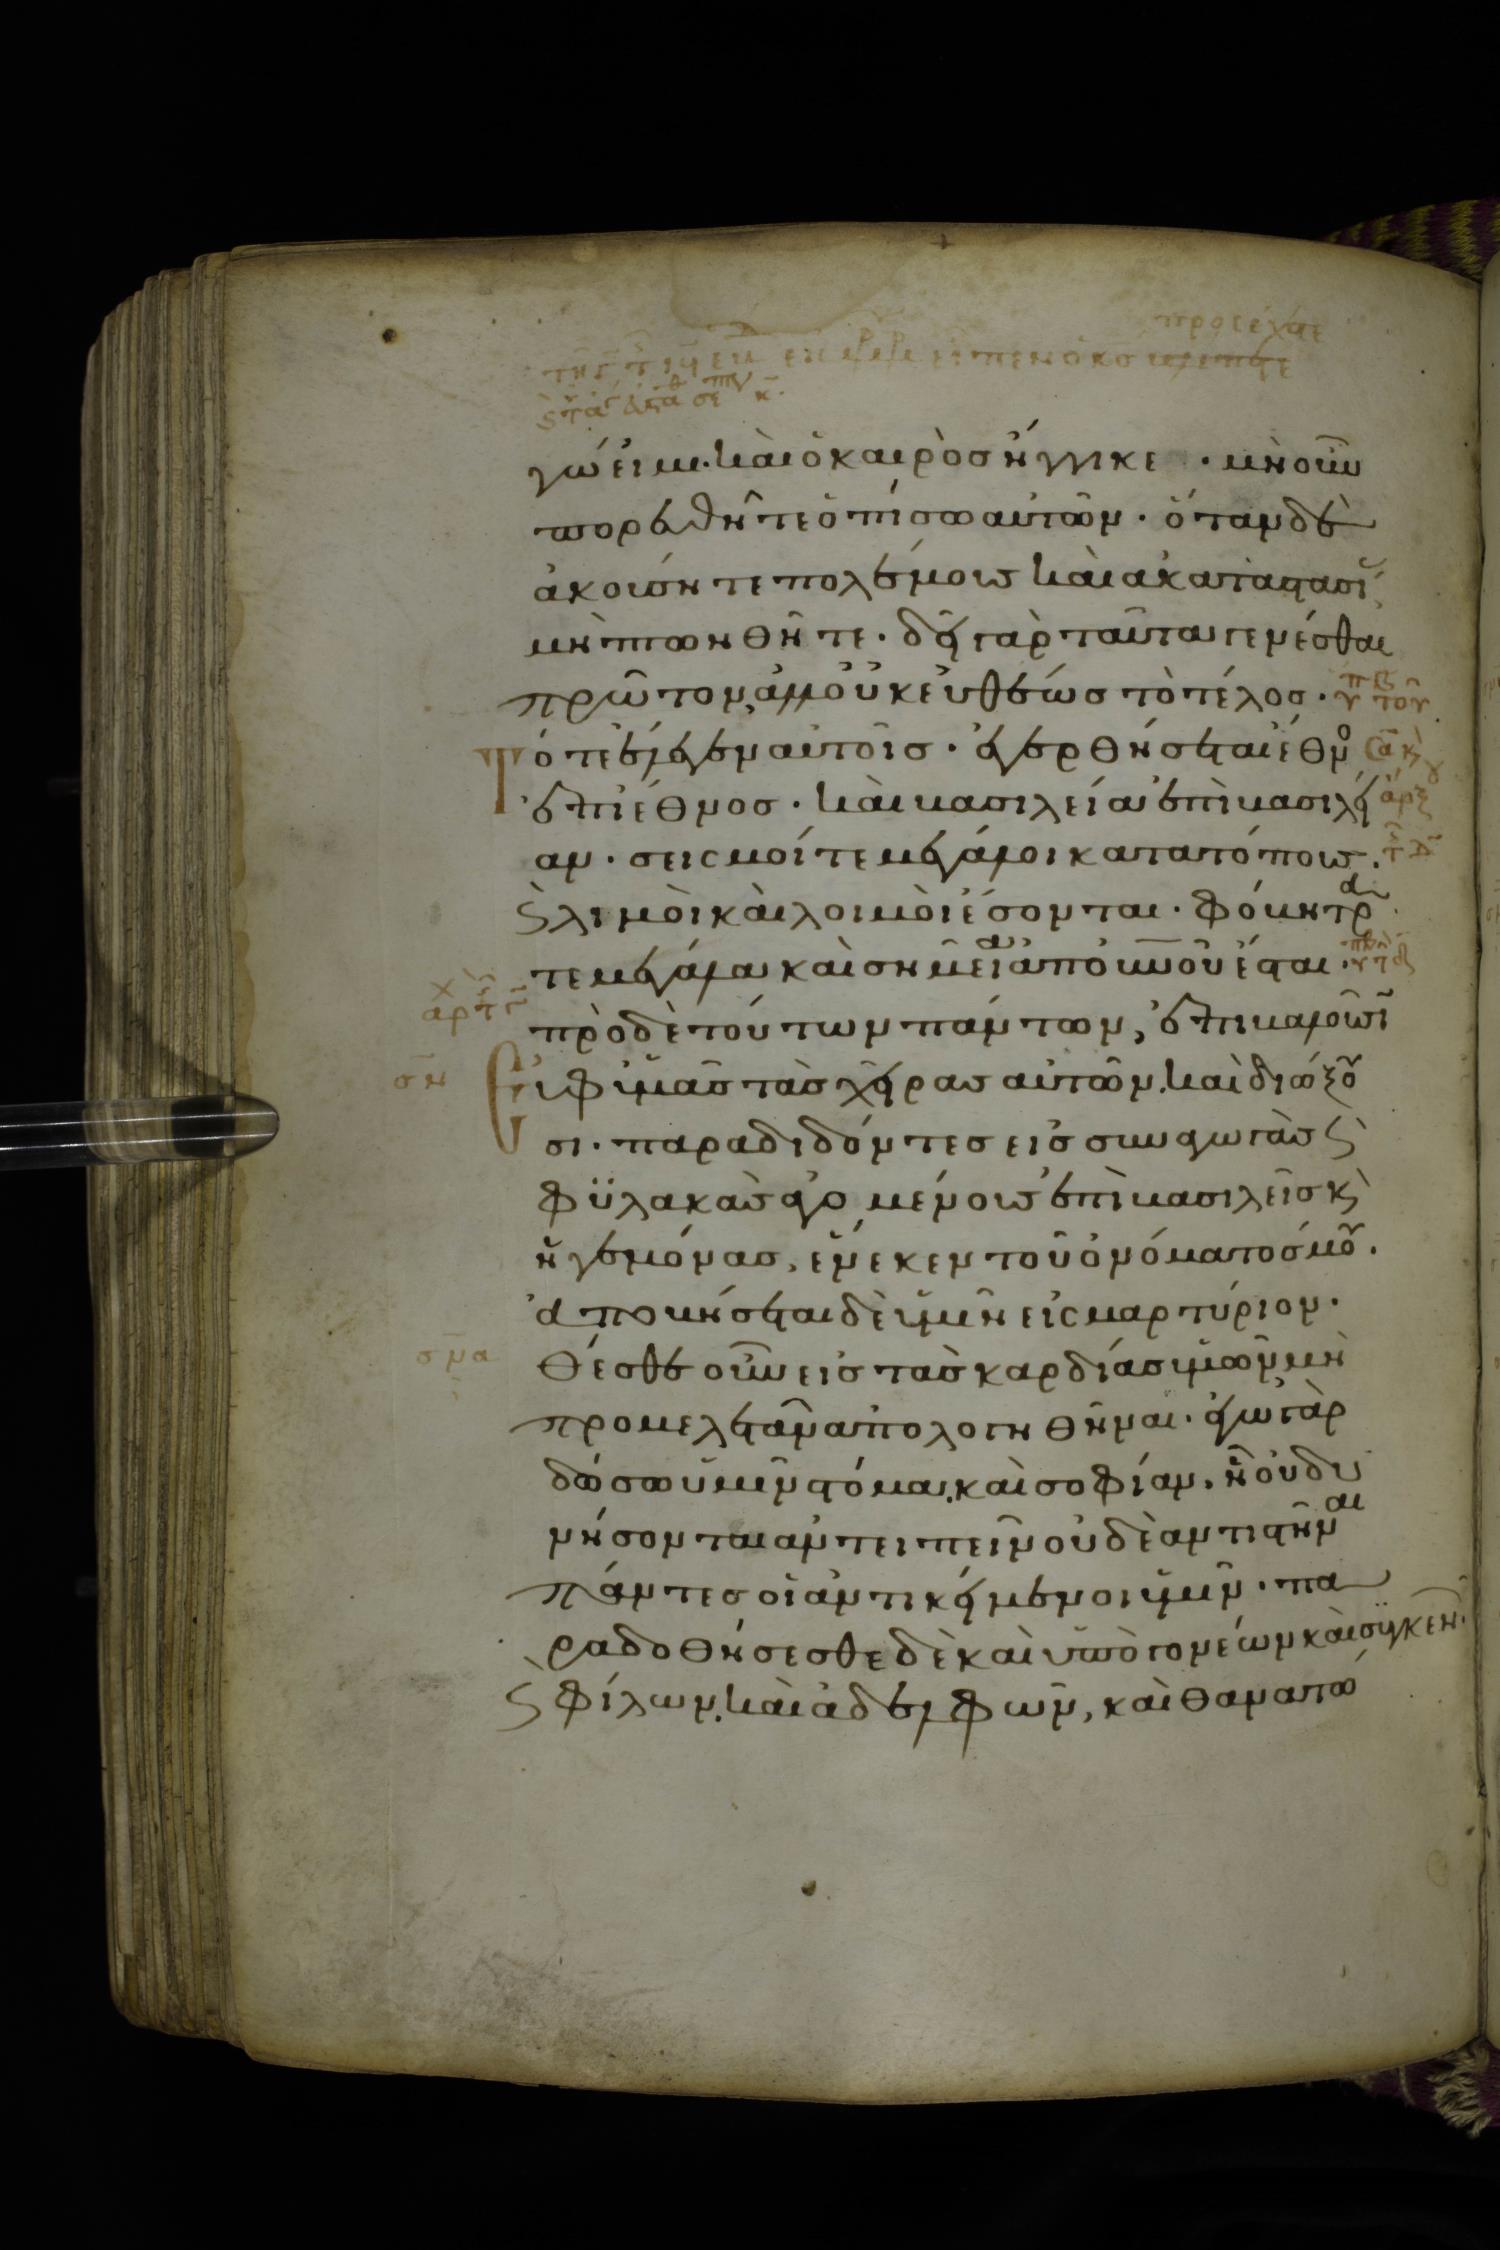 γώ εἰμι. καὶ ὁ καιρὸσ ἤγγικε · μὴ οὖν
πορευθῆτε ὀπίσω αὐτῶν · ὅταν δὲ
ἀκούσητε πολέμουσ καὶ ἀκαταστασί
μὴ πτωηθῆτε · δεῖ γὰρ ταῦτα γενέσθαι
πρῶτον, ἀλλ οὐκ ευθέωσ τὸ τέλοσ ·
Τότε ἔλεγεν αὐτοῖσ · ἐγερθήσεται ἔθνο
ἐπὶ ἔθνοσ · καὶ βασιλεία ἐπὶ βασιλεί
αν · σεισμοί τε μεγάλοι κατα τόπουσ ·
ϛ λιμοὶ καὶ λοιμοὶ ἔσονται · φόβητρα
τε μεγάλα καὶ σημεῖα ἀπ οὐνοῦ ἔσται ·
πρὸ δὲ τούτων πάντων, ἐπιβαλοῦσῖ
Ἐφ ὑμᾶσ τὰσ χεῖρασ αὐτῶν. καὶ διώξου
σι · παραδιδόντεσ εἰσ συναγωγὰσ ϛ
φϋλακὰσ ἀγομένουσ ἐπὶ βασιλεῖσ κ
ἡγεμόνασ, ἕνεκεν τοῦ ὀνόματόσ μου ·
ἀποβήσεται δὲ ὑμῖν εἰσ μαρτύριον ·
θέσθε οὖν εἰσ τὰσ καρδίασ ὑμῶν μὴ
προμελεταν ἀπολογηθῆναι · ἐγὼ γὰρ
δώσω ὑμῖν στόμα, καὶ σοφίαν, ἧ οὐ δυ
νήσονται ἀντειπεῖν οὐδὲ ἀντιστῆναι
πάντεσ οἱ ἀντικείμενοι ὑμῖν · πα
ραδοθήσεσθε δὲ καὶ ὑπὸ γονέων καὶ συγκεν
ϛ φίλων. καὶ ἀδελφῶν, καὶ θανατώ